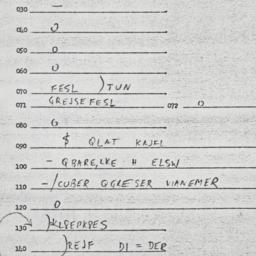 030 —
040 O
050 O
060 O
070 FESL ) TUN
071 GREJSEFESL 072 O
080 O
090 $ QLAT KAJEL
100 - QBARE,LKE H ELSW
110 -/CUBER QGRESER VIANEMER
120 O
130
140 )REJF DI = DER